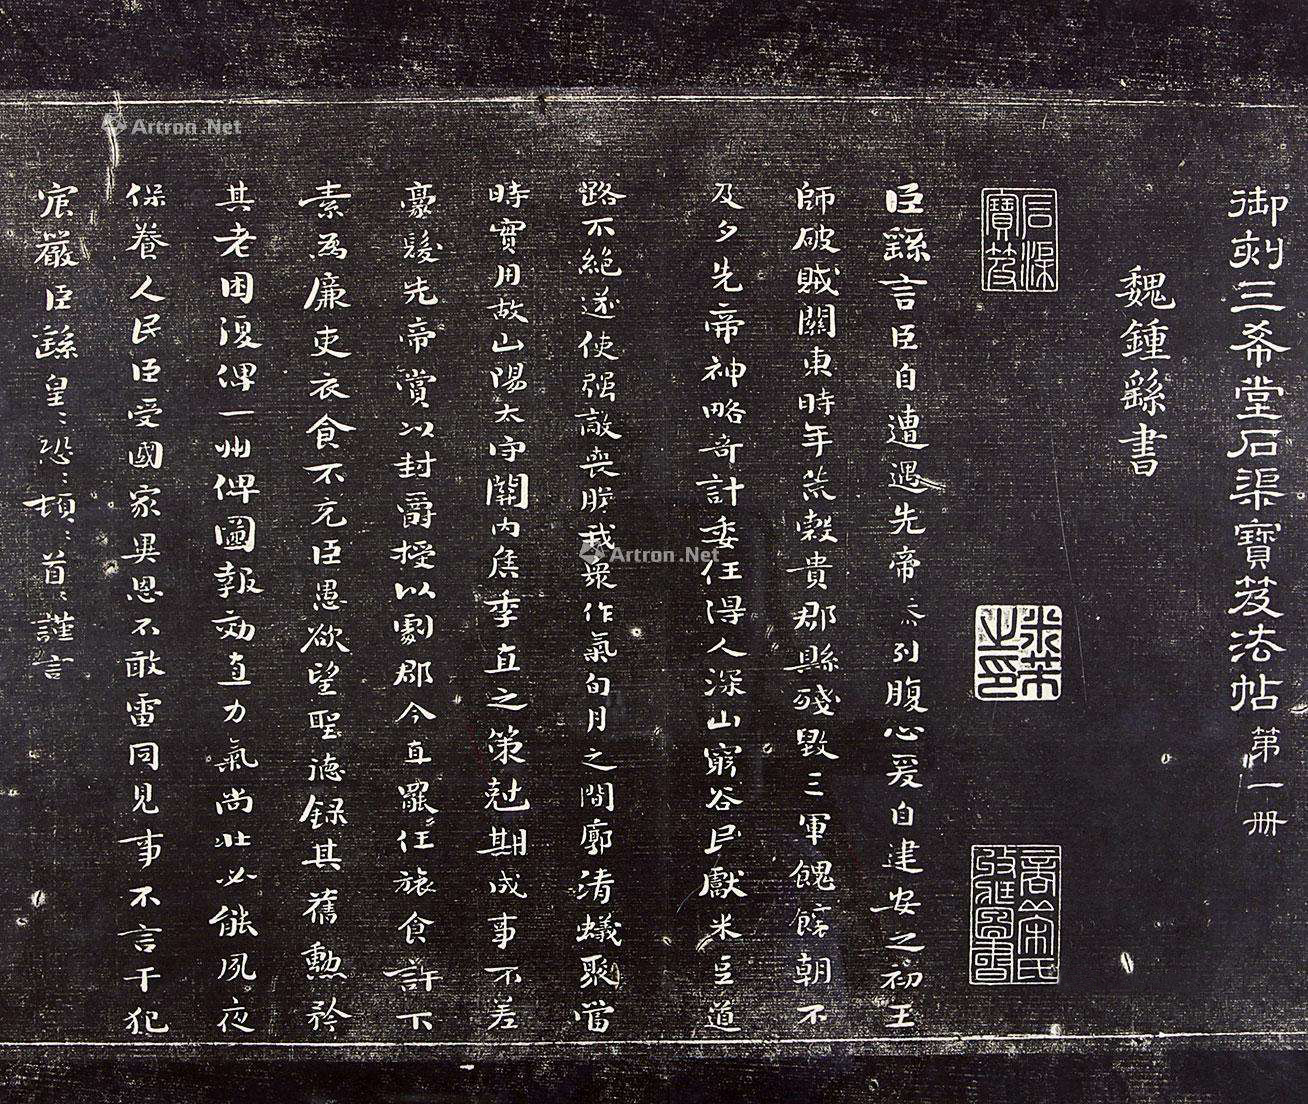 御刻三希堂石渠寶笈法帖第一冊
魏鍾繇書
石渠寶笈
米芾之印
臣繇言臣自遭遇先帝忝列腹心爰自建安之初王
師破賊關東時年荒穀貴郡縣殘毀三軍餽饟朝不
及夕先帝神略奇計委任得人深山窮谷民獻米豆道
路不絕遂使强敵喪膽我衆作氣旬月之間廓清蟻聚當
時實用故山陽太守關內侯季直之策剋期成事不差
豪髮先帝賞以封爵授以劇郡今直罷任旅食許下
素為廉吏衣食不充臣愚欲望聖德録其舊勳矜
其老困復俾一州俾圖報効直力氣尚壯必能夙夜
保養人民臣受國家異恩不敢雷同見事不言干犯
宸嚴臣繇皇〻恐〻頓〻首〻謹言
Artron.Net
Artron.Net